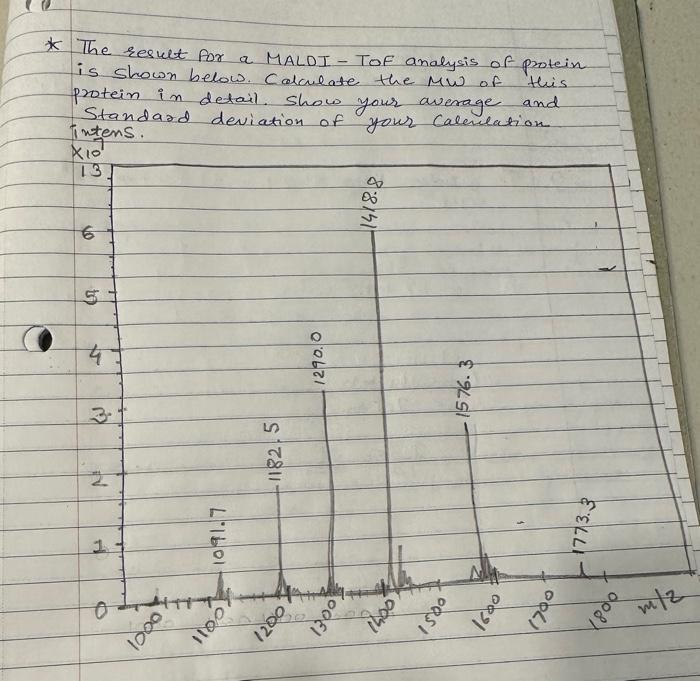 * The result for a MALDI - TOF analysis of protein
is shown below. Calculate the MW of this
protein in detail. Show your average and
Standard deviation of your Calculation
intens.
X10⁷
13
6
5
4
3
2
1
0
1091.7
1182.5
1290.0
1418.8
1576.3
1773.3
1000
1100
1200
1300
1400
1500
1600
1700
1800
m/z